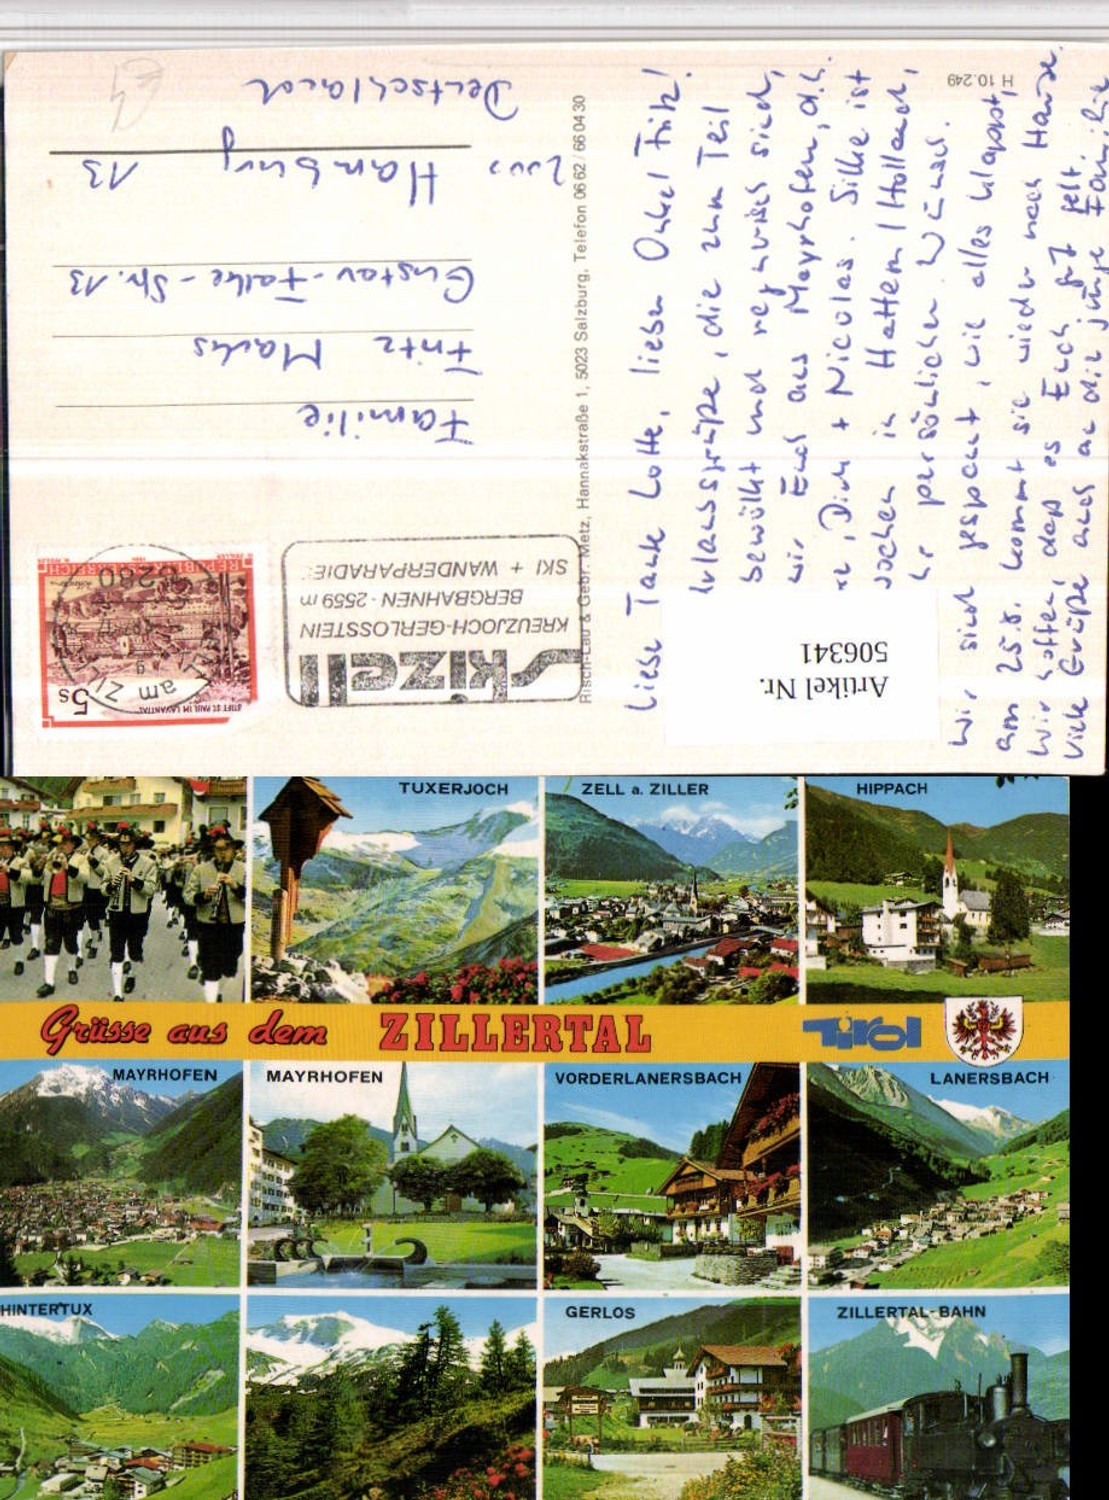 H 10.249
Liebe Tante Lotte, lieber Onkel Fritz!
Urlaubsgrüße, die zum Teil
bewölkt und regnerisch sind,
wir Euch aus Mayrhofen, d.h.
Dirk + Nicolas. Silke ist
in Hattem / Holland,
persönlicher Wunsch.
Wir sind gespannt, wie alles klappt,
am 25.8. kommt sie wieder nach Hause.
Wir hoffen, daß es Euch gut geht.
Viele Grüße auch an die junge Familie
Artikel Nr.
506341
Risch-Lau & Gebr. Metz, Hannakstraße 1, 5023 Salzburg, Telefon 06 62 / 66 04 30
5s
STIFT ST. PAUL IM LAVANTTAL
REPUBLIK ÖSTERREICH
6280
am ZILLER
Skizell
KREUZJOCH-GERLOSSTEIN
BERGBAHNEN - 2559 m
SKI + WANDERPARADIES
Familie
Fritz Machs
Gustav-Falke-Str. 13
2000 Hamburg 13
Deutschland
TUXERJOCH
ZELL a. ZILLER
HIPPACH
Grüsse aus dem ZILLERTAL
Tirol
MAYRHOFEN
MAYRHOFEN
VORDERLANERSBACH
LANERSBACH
HINTERTUX
GERLOS
ZILLERTAL-BAHN